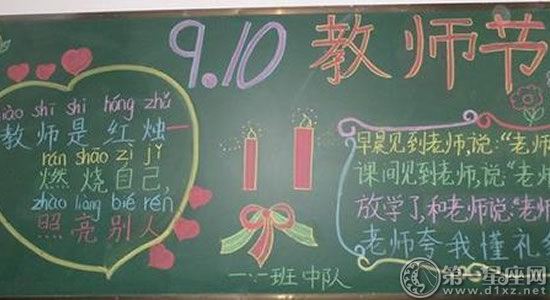 9.10 教师节
jiào shī shì hóng zhú
教师是红烛
rán shāo zì jǐ
燃烧自己,
zhào liàng bié rén
照亮别人
早晨见到老师,说:"老师
课间见到老师,说:"老师
放学了,和老师说:"老师
老师夸我懂礼
一·一班中队
第一星座网
www.d1xz.net